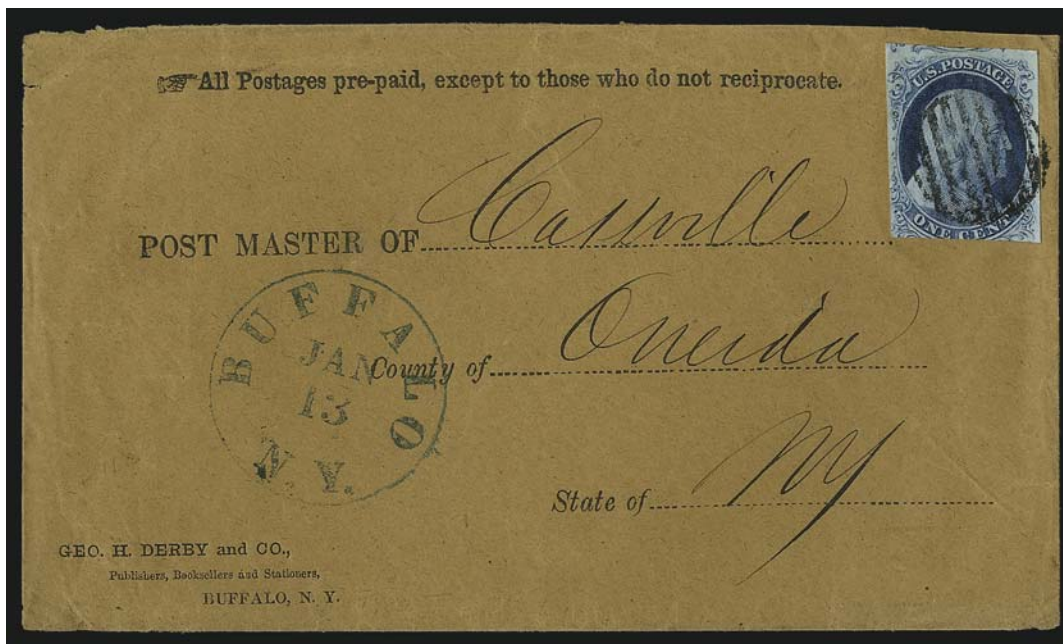 ☞All Postages pre-paid, except to those who do not reciprocate.
U.S. POSTAGE
ONE CENT
POST MASTER OF Cassville
BUFFALO
JAN
13
N.Y.
County of Oneida
State of NY
GEO. H. DERBY and CO.,
Publishers, Booksellers and Stationers,
BUFFALO, N. Y.